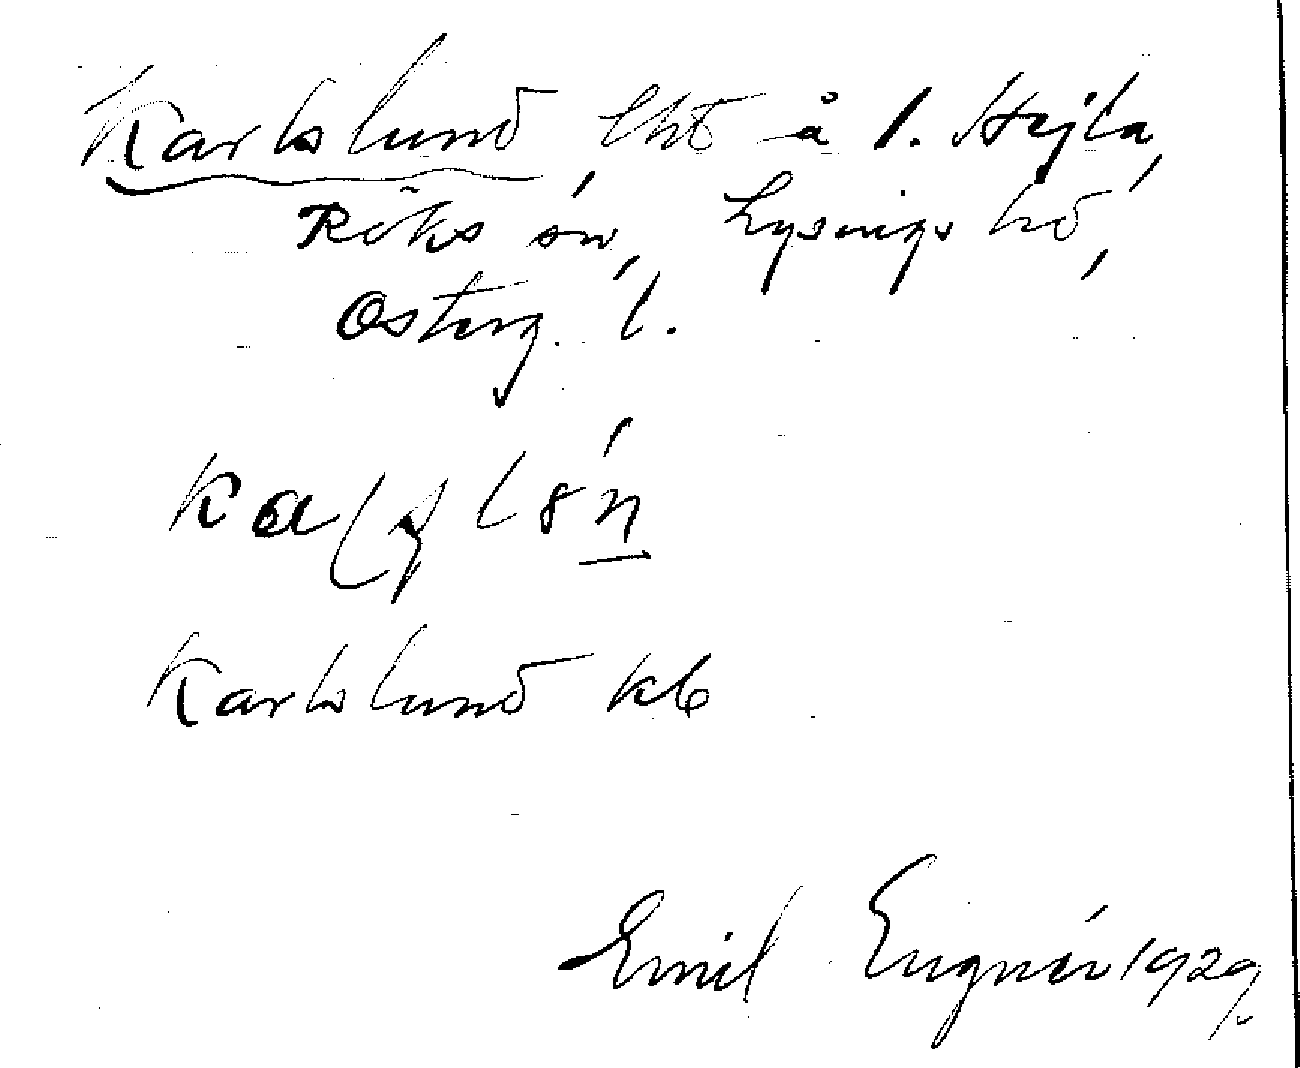 Karlslund, lht å 1. Hejla,
Röks sn, Lysings hd,
Österg. l.
Karlslund kb
Emil Engnér 1929.